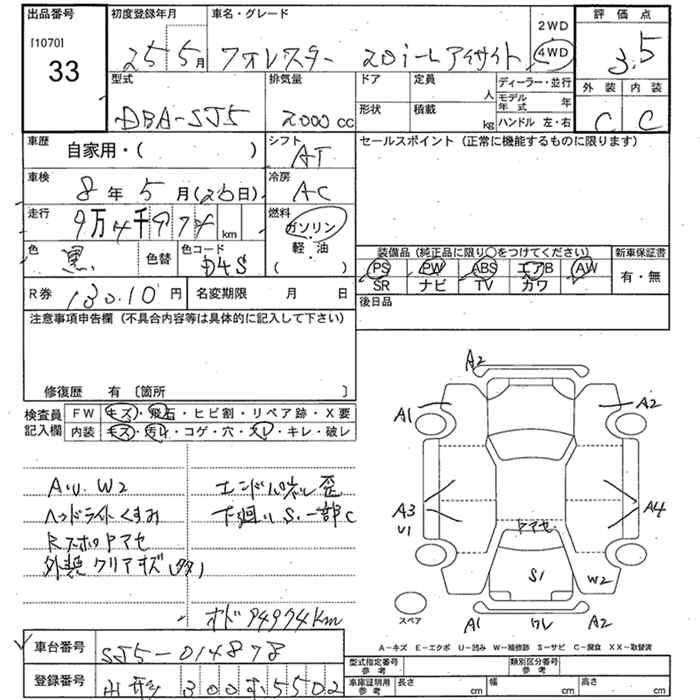 出品番号 初度登録年月 車名・グレード 評価点
[1070] 33
25年 5月 フォレスター 20i-L アイサイト 2WD 4WD 3.5
外装 内装
C C
型式 排気量 ドア 定員 人 ディーラー・並行
モデル年式 年
DBA-SJ5 2000cc 形状 積載 kg ハンドル 左・右
車歴 自家用・( ) シフト AT セールスポイント (正常に機能するものに限ります)
車検 8年 5月(26日) 冷房 AC
走行 9万4千974km 燃料 ガソリン・軽・油 ( )
色 黒 色替 色コード D4S
装備品 (純正品に限り○をつけてください) 新車保証書
PS PW ABS エアB AW 有・無
SR ナビ TV カワ
R券 13010円 名変期限 月 日 後日品
注意事項申告欄 (不具合内容等は具体的に記入して下さい)
修復歴 有 〔箇所 〕
検査員記入欄 FW キズ・飛石・ヒビ割・リペア跡・X要
内装 キズ・汚れ・コゲ・穴・スレ・キレ・破レ
A.U.W2 エンドパネル歪
ヘッドライトくすみ 下廻りS.一部C
RスホロヤアセR
外装クリアキズ(多)
オド 94974km
A2
A1 A2
A3 U1 A4
ヤアセ
S1 W2
スペア
A1 ワレ A2
A-キズ E-エクボ U-凹み W-補修跡 S-サビ C-腐食 XX-取替済
車台番号 SJ5-014878
登録番号 山形 300す5502
型式指定番号 参考 類別区分番号 参考
車庫証明用 参考 長さ cm 幅 cm 高さ cm